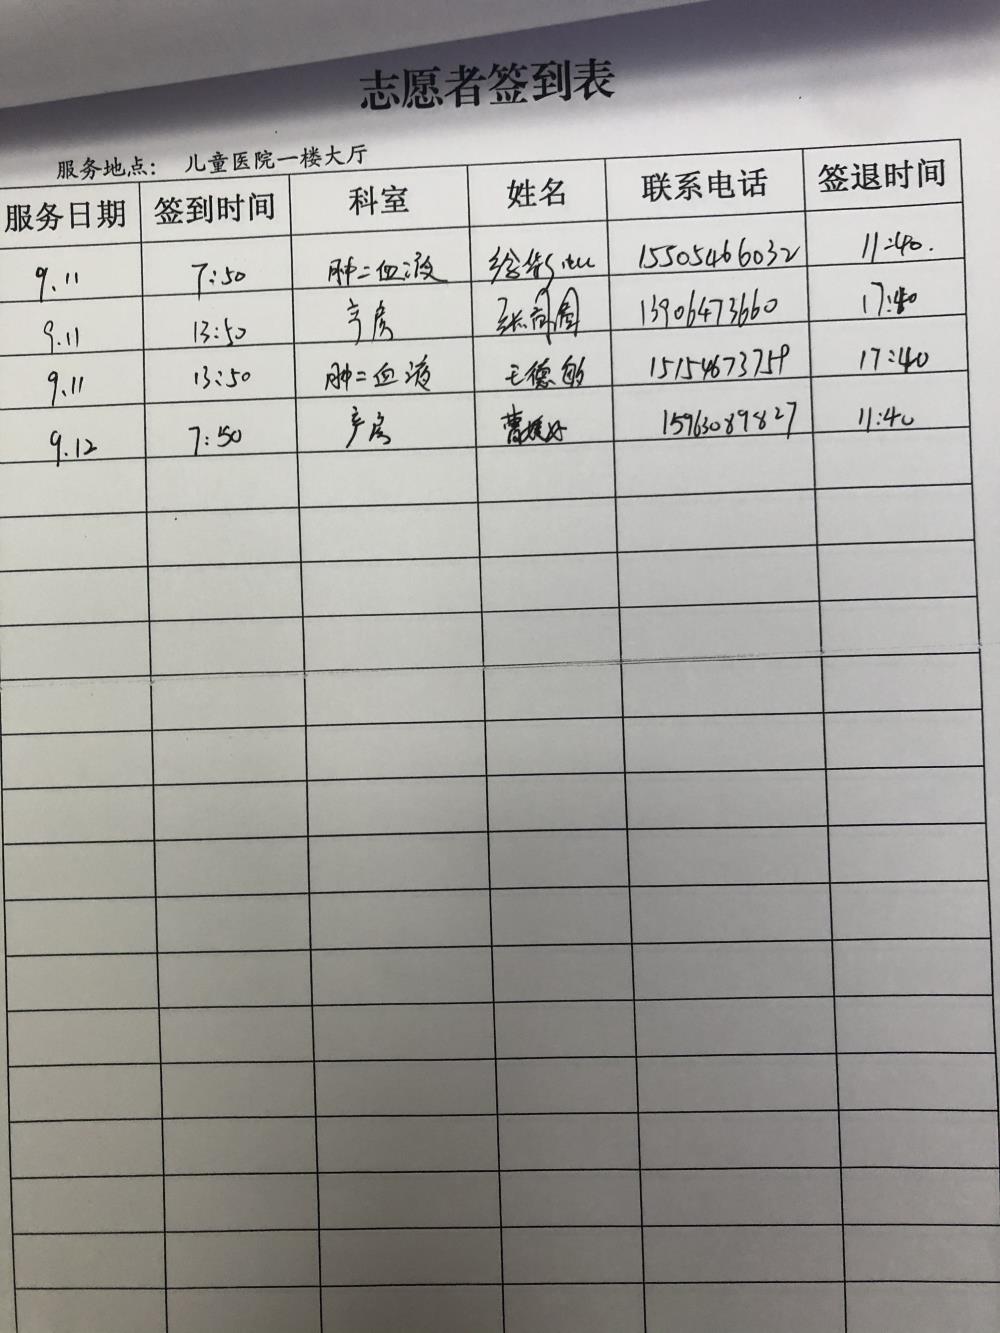 志愿者签到表
服务地点： 儿童医院一楼大厅
服务日期 签到时间 科室 姓名 联系电话 签退时间
9.11 7:50 肿二血液 15505466032 11:40.
9.11 13:50 产房 13906473660 17:40
9.11 13:50 肿二血液 王德敏 15154673759 17:40
9.12 7:50 产房 曹媛好 15963089827 11:40